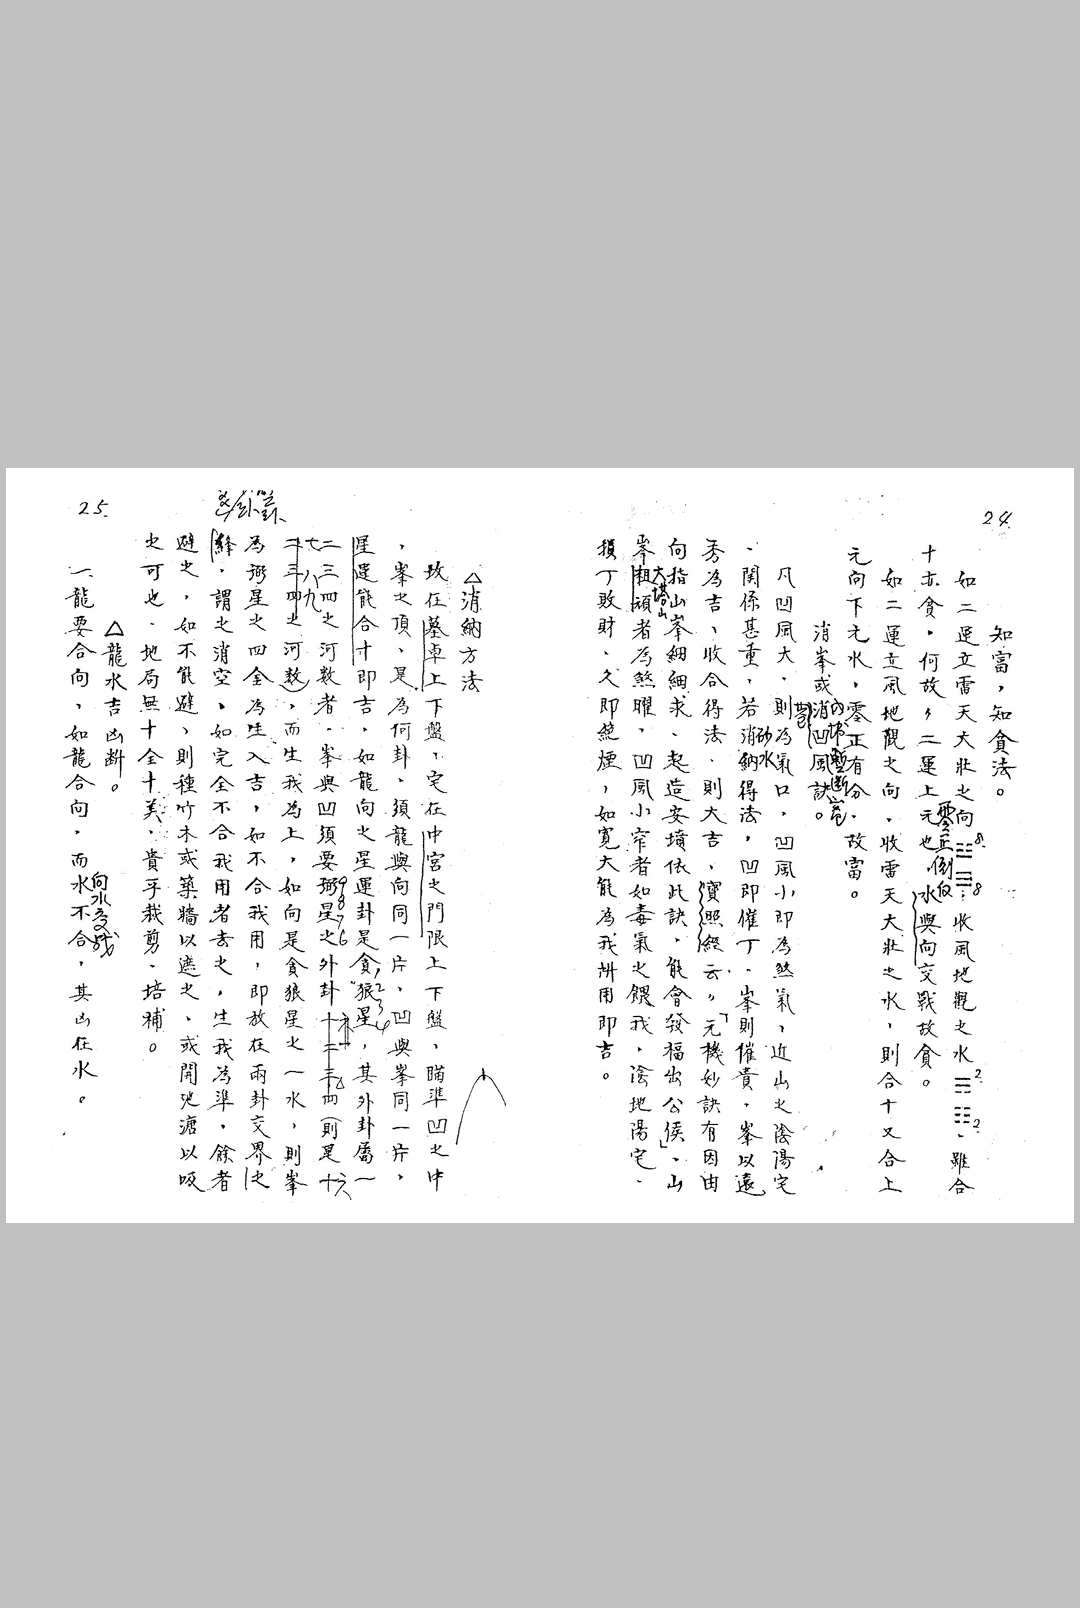 24.
知富，知貪法。
如二運立雷天大壯之向 8. 8 ，收風地觀之水 2. 2. 、雖合
十亦貪。何故，二運上元也，水與向交戰故貪。
零正倒
如二運立風地觀之向，收雷天大壯之水，則合十又合上
元向下元水，零正有分，故富。
消峯或消凹風訣。
凡凹風大，則為氣口，凹風小即為煞氣，近山之陰陽宅
砂水
、關係甚重，若消納得法，凹即催丁、峯則催貴，峯以遠
秀為吉，收合得法、則大吉，寶照經云，「元機妙訣有因由
向指山峯細細求、起造安墳依此訣，能會發福出公侯」、山
大塔山
峯粗頑者為煞曜，凹風小窄者如毒氣之餵我，陰地陽宅、
損丁敗財、久即絕煙，如寬大能為我所用即吉。
25.
△消納方法
攷在墓卓上下盤，宅在中宮之門限上下盤，瞄準凹之中
，峯之頂、是為何卦，須龍與向同一片，凹與峯同一片，
星運能合十即吉，如龍向之星運卦是貪狼星，其外卦屬一
1 2 3 4
二三四之河數者，峯與凹須要弼星之外卦十二三四（則是十六
9 8 7 6
七八九
二三四之河數），而生我為上，如向是貪狼星之一水，則峯
為弼星之四全為生入吉，如不合我用，即放在兩卦交界之
縫，謂之消空，如完全不合我用者去之，生我為準，餘者
避之，如不能避，則種竹木或築牆以遮之、或開池溏以吸
之可也、地局無十全十美，貴乎裁剪、培補。
△龍水吉凶斷。
一、龍要合向，如龍合向，而水不合，其凶在水。
向水交戰